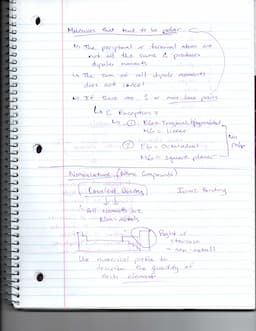 Molecules that tend to be polar:
↳ The peripheral or terminal atoms are
not all the same & produces
dipole moments
↳ The sum of all dipole moments
does not cancel
↳ If there are 1 or more lone pairs
↳ 2 Exceptions
↳ ① Eles = Trigonal bipyramidal
MG = linear
② = Octahedral
MG = square planar
Non
polar
Nomenclature (Name Compounds)
Covalent Bonding Ionic Bonding
All elements are
Non-metals
Right of
staircase
= non-metal
Use numerical prefix to
describe the quantity of
each element